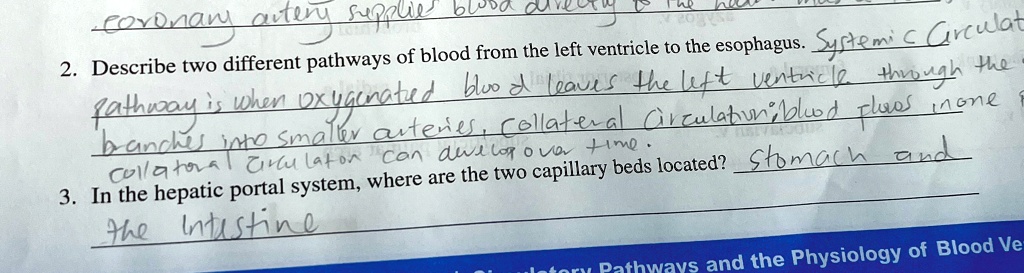 coronary artery supplies blood directly to the heart
2. Describe two different pathways of blood from the left ventricle to the esophagus. Systemic Circulat
pathway is when oxygenated blood leaves the left ventricle through the
branches into smaller arteries, Collateral Circulation; blood flows in one
collatoral Circulation can develop over time.
3. In the hepatic portal system, where are the two capillary beds located? Stomach and
the Intestine
Pathways and the Physiology of Blood Ve